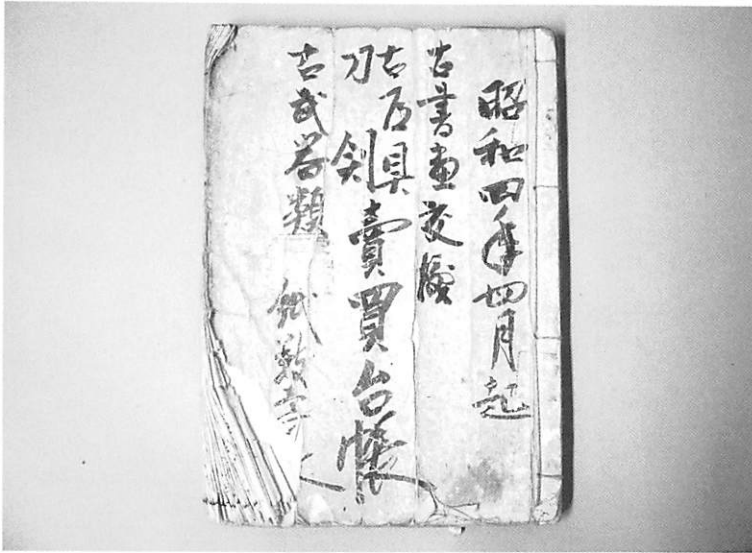 昭和四年四月起
古書画交換
古道具
刀剣
賣買台帳
古武器類
紙数壱